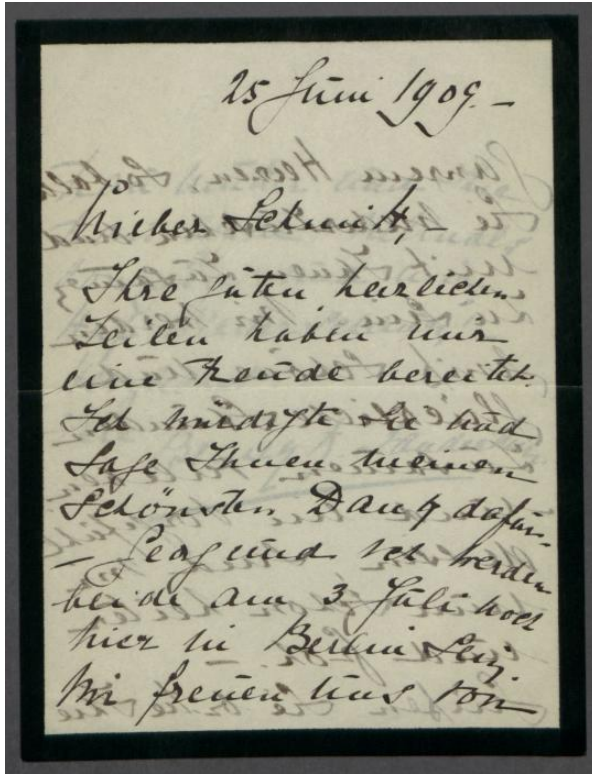 25 Juni 1909. –
Lieber Schmidt, –
Ihre guten herzlichen
Zeilen haben mir
eine Freude bereitet.
Ich würdigte sie und
sage Ihnen meinen
schönsten Dank dafür.
– Georg und ich werden
beide am 3 Juli noch
hier in Berlin sein.
Wir freuen uns von